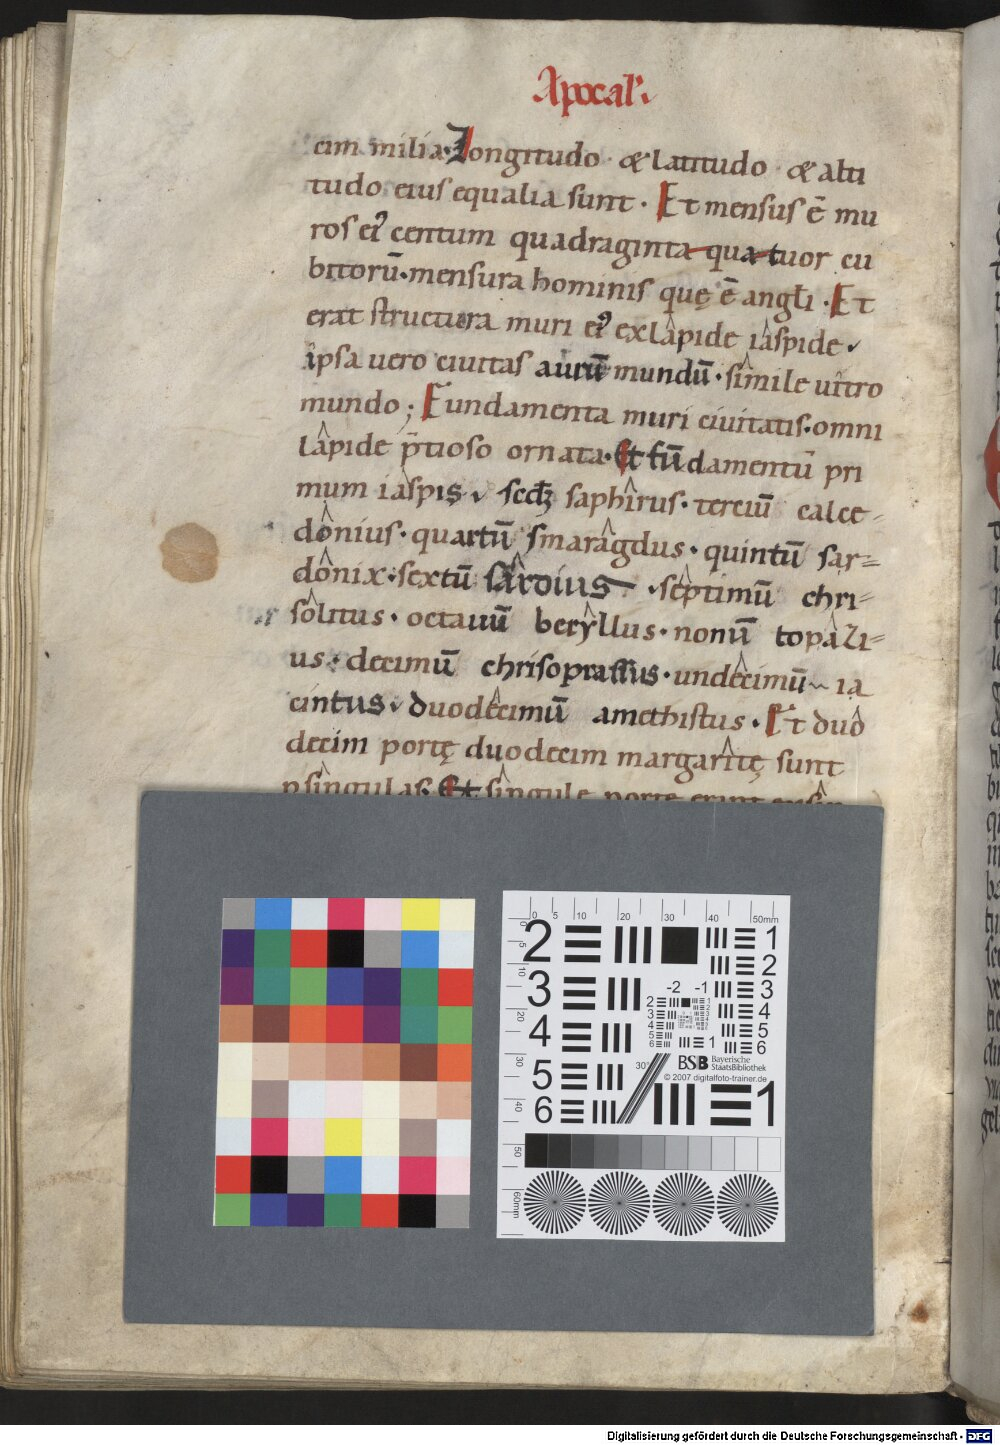 Apocal'.
cim milia. Longitudo · & latitudo · & alti
tudo eius equalia sunt · Et mensus ē mu
ros ei᾽ centum quadraginta quatuor cu
bitorū · mensura hominis quę ē angłi · Et
erat structura muri ei᾽ ex lapide iaspide
ipsa vero civitas aurū mundū · simile vitro
mundo ; Fundamenta muri civitatis · omni
lapide p̄tioso ornata · Et fūdamentū pri
mum iaspis secdꝫ saphirus · terciū calce-
donius · quartū smaragdus · quintū sar=
donix · sextū sardius · septimū chri=
solitus · octauū beryllus · nonū topazi=
us : decimū chrisoprassus · undecimū ia
cintus duodecimū amethistus · Et duo
decim portę duodecim margaritę sunt
p singulas. Et singule porte erant ex sin
0 5 10 20 30 40 50mm
2 1
2
3 -2 -1 3
4 4
5 5
6 6
30°
BSB Bayerische
StaatsBibliothek
© 2007 digitalfoto-trainer.de
1
0 5 10 20 30 40 50 60mm
Digitalisierung gefördert durch die Deutsche Forschungsgemeinschaft - DFG